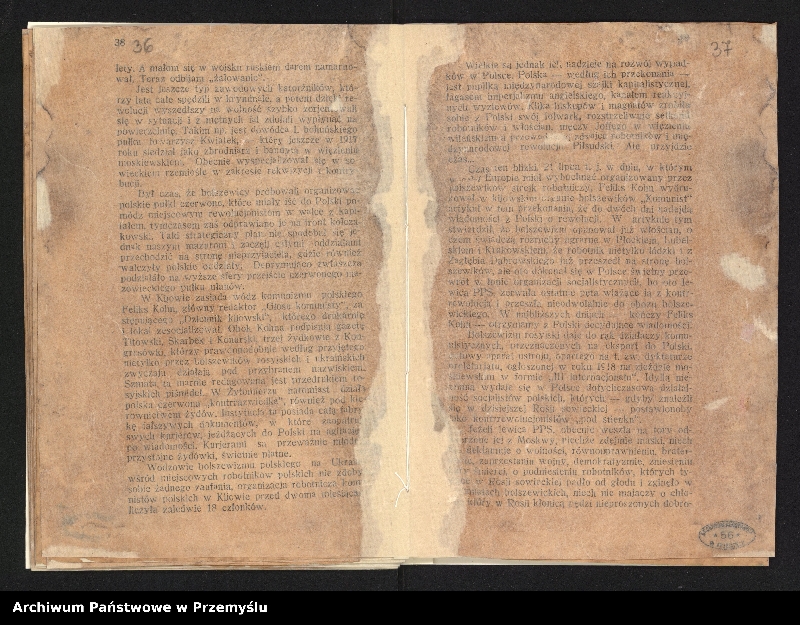 38 36
lety. A małom się w wojsku ruskiem darem namarno-
wał. Toraz odbijam „żałowanie“.
Jest jeszcze typ zawodowych katorżników, któ-
rzy lata całe spędzili w kryminale, a potem dzięki re-
wolucji wyszedłszy na wolność szybko zorjentowali
się w sytuacji i z mętnych fal zdołali wypłynąć na
powierzchnię. Takim np. jest dowódca I. bohuńskiego
pułku towarzysz Kwiatek, który jeszcze w 1917
roku siedział jako zbrodniarz i bandyta w więzieniu
moskiewskiem. Obecnie wyspecjalizował się w so-
wieckiem rzemiośle w zakresie rekwizycji i kontry-
bucji.
Był czas, że bolszewicy próbowali organizować
polskie pułki czerwone, które miały iść do Polski po-
módz miejscowym rewolucjonistom w walce z kapi-
tałem, tymczasem zaś odprawiano je na front kołcza-
kowski. Taki strategiczny plan nie spodobał się je-
dnak naszym mazurom i zaczęli całymi oddziałami
przechodzić na stronę nieprzyjaciela, gdzie również
walczyły polskie oddziały. Deprymująco zwłaszcza
podziałało na wyższe sfery przejście czerwonego ma-
zowieckiego pułku ułanów.
W Kijowie zasiada wódz komunizmu polskiego
Feliks Kohn, główny redaktor „Głosu komunisty“, za-
stępującego „Dziennik kijowski“, którego drukarnię
Kohn zesocjalizował. Obok Kohna podpisują gazetę
Titowski, Skarbek i Konarski, trzej żydkowie z Kon-
gresówki, którzy prawdopodobnie według przyjętego
nietylko przez bolszewików rosyjskich i ukraińskich
zwyczaju działają pod przybranem nazwiskiem.
Szmata ta marnie redagowana jest przedrukiem ro-
syjskich piśmideł. W Żytomierzu natomiast działa
polska czerwona „kontrrazwiedka“, również pod kie-
rownictwem żydów. Instytucja ta posiada całą fabry-
kę fałszywych dokumentów, w które zaopatruje
swych kurjerów, jeżdżących do Polski na agitację i
po wiadomości. Kurjerami są przeważnie młode
przystojne żydówki, świetnie płatne.
Wodzowie bolszewizmu polskiego na Ukrainie
wśród miejscowych robotników polskich nie zdobyli
sobie żadnego zaufania, organizacja robotnicza komu-
nistów polskich w Kijowie przed dwoma miesiącami
liczyła zaledwie 18 członków.
37
Wielkie są jednak ich nadzieje na rozwój wypad-
ków w Polsce. Polska — według ich przekonania —
jest pupilką międzynarodowej szajki kapitalistycznej,
agasem imperjalizmu angielskiego, kanałem reakcyj-
nych wyziewów. Klika biskupów i magnatów zrobiła
sobie z Polski swój folwark, rozstrzeliwuje setkami
robotników i włościan, męczy Joffego w więzieniu
wileńskiem i przewodzi robotników i mię-
dzynarodowej rewolucji Piłsudski. Ale przyjdzie
czas...
Czas ten bliski. 21 lipca t. j. w dniu, w którym
w całej Europie miał wybuchnąć organizowany przez
bolszewików strejk robotniczy, Feliks Kohn wydru-
kował w kijowskim organie bolszewików „Komunist“
artykuł w tem przekonaniu, że do dwóch dni nadejdą
wiadomości z Polski o rewolucji. W artykule tym
stwierdził, że bolszewizm opanował już włościan, o
czem świadczą rozruchy agrarne w Płockiem, Lubel-
skiem i Krakowskiem, że robotnik nietylko łódzki i z
Zagłębia Dąbrowskiego już przeszedł na stronę bol-
szewików, ale oto dokonał się w Polsce świetny prze-
wrót w łonie organizacji socjalistycznych, bo oto le-
wica PPS. zerwała ostatnie pęta wiążące ją z kontr-
rewolucją i przeszła nieodwołalnie do obozu bolsze-
wickiego. W najbliższych dniach — kończy Feliks
Kohn — otrzymamy z Polski decydujące wiadomości.
Bolszewizm rosyjski daje do rąk działaczy komu-
nistycznych, przeznaczonych na eksport do Polski,
gotowy projekt ustroju, opartego na t. zw. dyktaturze
proletarjatu, ogłoszonej w roku 1918 na zjeździe mo-
skiewskim w formie „III internacjonału“. Idyllą nie-
winną wydaje się w Polsce dotychczasowa działal-
ność socjalistów polskich, których — gdyby znaleźli
się w dzisiejszej Rosji sowieckiej — postawionoby
jako kontrrewolucjonistów „pod stienku“.
Jeżeli lewica PPS. obecnie weszła na tory od-
tworzone jej z Moskwy, niechże zdejmie maski, niech
deklamuje o wolności, równouprawnieniu, brater-
stwie, zaprzestaniu wojny, demokratyzmie, zniesieniu
kary śmierci, o podniesieniu robotników, których ty-
siące w Rosji sowieckiej padło od głodu i zginęło w
bolszewickich, niech nie majaczy o chło-
pach, który w Rosji klonicą pędzi nieproszonych dobro-
56
Archiwum Państwowe w Przemyślu